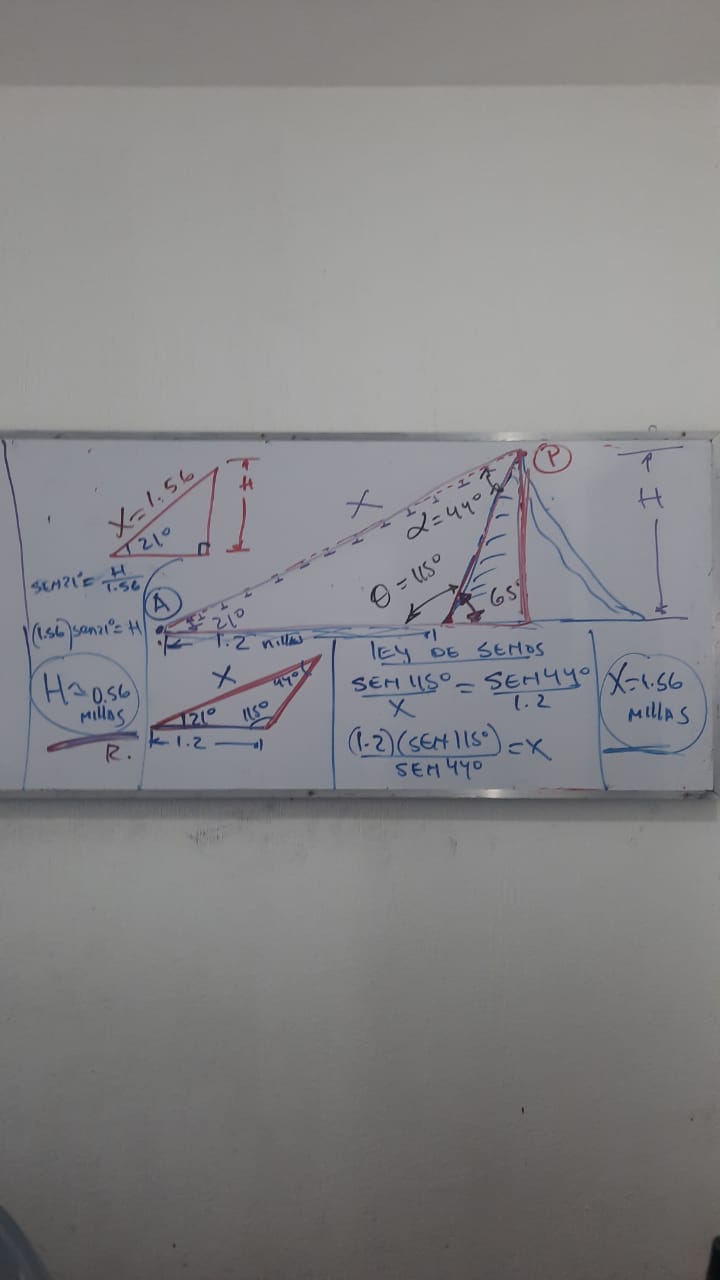 X=1.56
21°
H
SEN21°= H/1.56
(1.56) SEN21° = H
H≈0.56
MILLAS
R.
A
P
X
α=44°
θ=115°
65°
21°
1.2 millas
H
X
44°
21°
115°
1.2
LEY DE SENOS
SEN 115°/X = SEN 44°/1.2
(1.2)(SEN 115°)/SEN 44° = X
X=1.56
MILLAS